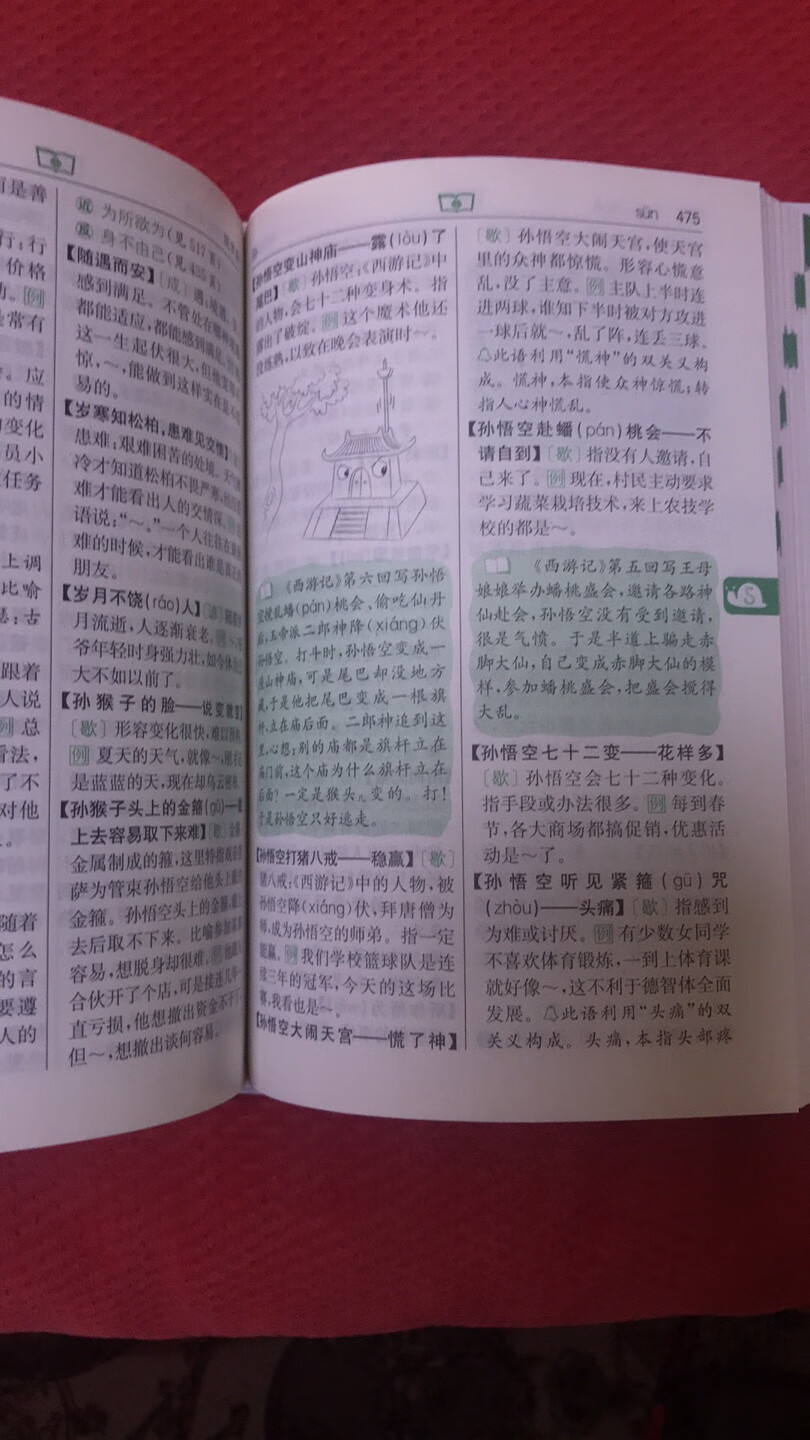 而是善
行；行
价格
例
是常有
应
的情
变化
员小
任务
上调
比喻
古
跟着
人说
例 总
看法，
了不
对他
随着
怎么
的言
要遵
人的
近 为所欲为(见517页)
反 身不由己(见435页)
【随遇而安】〔成〕遇：
感到满足。不管处在哪
都能适应，都能感到满足。
这一生起伏很大，但他
惊，～，能做到这样实在是
易的。
【岁寒知松柏，患难见交情】
患难：艰难困苦的处境。
冷才知道松柏不畏严寒，
难才能看出人的交情深
语说：“～。”一个人往往在
难的时候，才能看出谁是真正
朋友。
【岁月不饶(ráo)人】
月流逝，人逐渐衰老。
爷年轻时身强力壮，如今
大不如以前了。
【孙猴子的脸——说变就变
〔歇〕形容变化很快，难以
例 夏天的天气，就像～，刚才
是蓝蓝的天，现在却乌云
【孙猴子头上的金箍(gū)——
上去容易取下来难】〔歇〕
金属制成的箍，这里特指
萨为管束孙悟空给他头上
金箍。孙悟空头上的金箍，
去后取不下来。比喻参加
容易，想脱身却很难。
合伙开了个店，可是接连几年
直亏损，他想撤出资金
但～，想撤出谈何容易。
sūn 475
【孙悟空变山神庙——露(lòu)了
尾巴】〔歇〕孙悟空：《西游记》中
的人物，会七十二种变身术。指
露出了破绽。例 这个魔术他还
没练熟，以致在晚会表演时～。
《西游记》第六回写孙悟
空搅乱蟠(pán)桃会、偷吃仙丹
后，玉帝派二郎神降(xiáng)伏
孙悟空。打斗时，孙悟空变成一
座山神庙，可是尾巴却没地方
藏，于是他把尾巴变成一根旗
杆，立在庙后面。二郎神追到这
里，心想：别的庙都是旗杆立在
庙门前，这个庙为什么旗杆立在
后面？一定是猴头儿变的。打！
于是孙悟空只好逃走。
【孙悟空打猪八戒——稳赢】〔歇〕
猪八戒：《西游记》中的人物，被
孙悟空降(xiáng)伏，拜唐僧为
师，成为孙悟空的师弟。指一定
能赢。例 我们学校篮球队是连
续三年的冠军，今天的这场比
赛，我看也是～。
【孙悟空大闹天宫——慌了神】
〔歇〕孙悟空大闹天宫，使天宫
里的众神都惊慌。形容心慌意
乱，没了主意。例 主队上半时连
进两球，谁知下半时被对方攻进
一球后就～，乱了阵，连丢三球。
此语利用“慌神”的双关义构
成。慌神，本指使众神惊慌；转
指人心神慌乱。
【孙悟空赴蟠(pán)桃会——不
请自到】〔歇〕指没有人邀请，自
己来了。例 现在，村民主动要求
学习蔬菜栽培技术，来上农技学
校的都是～。
《西游记》第五回写王母
娘娘举办蟠桃盛会，邀请各路神
仙赴会，孙悟空没有受到邀请，
很是气愤。于是半道上骗走赤
脚大仙，自己变成赤脚大仙的模
样，参加蟠桃盛会，把盛会搅得
大乱。
【孙悟空七十二变——花样多】
〔歇〕孙悟空会七十二种变化。
指手段或办法很多。例 每到春
节，各大商场都搞促销，优惠活
动是～了。
【孙悟空听见紧箍(gū)咒
(zhòu)——头痛】〔歇〕指感到
为难或讨厌。例 有少数女同学
不喜欢体育锻炼，一到上体育课
就好像～，这不利于德智体全面
发展。此语利用“头痛”的双
关义构成。头痛，本指头部疼
S